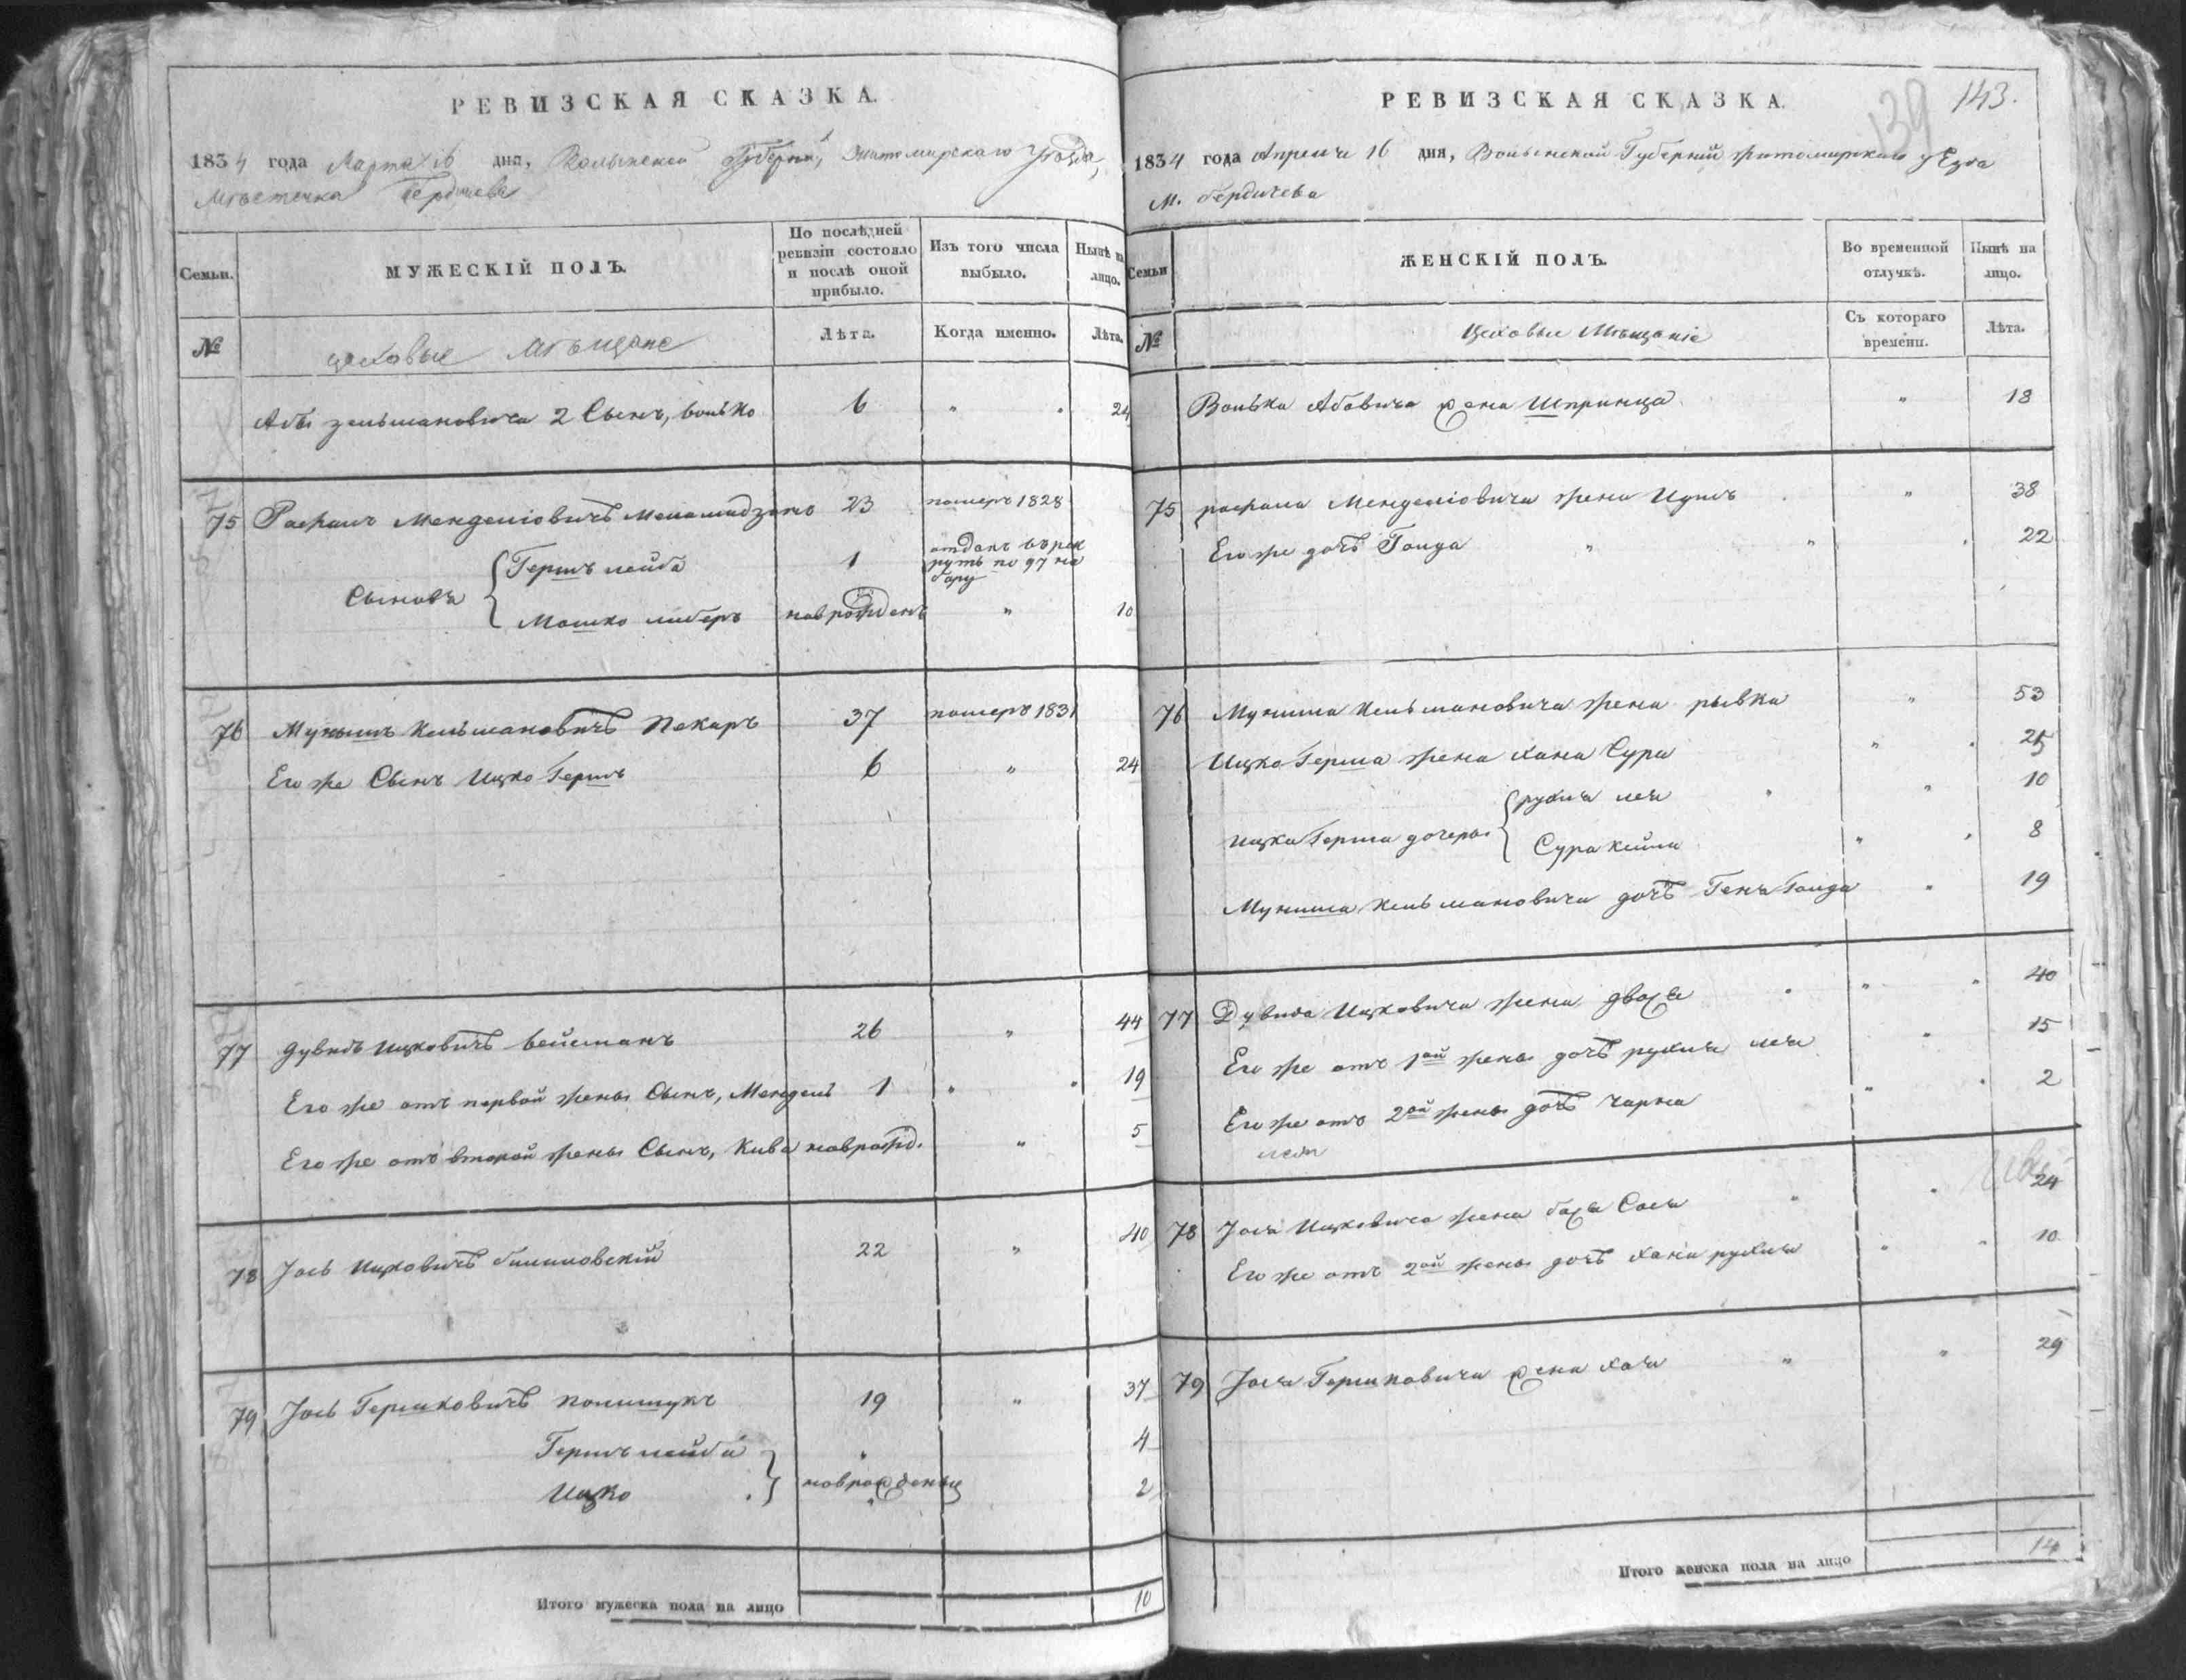 РЕВИЗСКАЯ СКАЗКА.
1834 года Марта 16 дня, Волынской Губернии, Житомирскаго Уезда,
Мѣстечка Бердичева
Семьи.
МУЖЕСКІЙ ПОЛЪ.
По послѣдней ревизіи состояло и послѣ оной прибыло.
Изъ того числа выбыло.
Нынѣ на лицо.
№
цеховые Мѣщане
Лѣта.
Когда именно.
Лѣта.
Абы Зельмановича 2 Сынъ, Волько 6 " " 24
75 Рафаилъ Менделіовичъ 23 померъ 1828
Сыновья { Гершъ лейба 1 отданъ въ рекруты по 97 набору
Мошко либеръ новрожденъ " 10
76 Мунышъ Кельмановичъ Пекаръ 37 померъ 1831
Его же Сынъ Ицко Гершъ 6 " 24
77 Дувидъ Ицковичъ Вейсманъ 26 " 44
Его же отъ первой жены Сынъ, Мендель 1 " " 19
Его же отъ второй жены Сынъ, Кива новрожд. " 5
78 Іось Ицковичъ 22 " 40
79 Іось Гершковичъ Полищукъ 19 " 37
Гершъ лейба " 4
Ицко } новрожденны " 2
Итого мужеска пола на лицо 10
РЕВИЗСКАЯ СКАЗКА.
139 143.
1834 года Апреля 16 дня, Волынской Губерніи житомирскаго уезда
М. Бердичева
Семьи
ЖЕНСКІЙ ПОЛЪ.
Во временной отлучкѣ.
Нынѣ на лицо.
№
Цеховые Мѣщаніе
Съ котораго времени.
Лѣта.
Волька Абовича жена Шпринца " 18
75 рафаила Менделіовича жена " 38
Его же дочь Голда " " " 22
76 Муниша Кельмановича жена рывка " 53
Ицко Герша жена Хана Сура " " 25
Ицка Герша дочеры { рухля лея " " 10
Сура " " 8
Муниша Кельмановича дочъ Геня Голда " 19
77 Дувида Ицковича жена двося " " " 40
Его же отъ 1ой жены дочъ рухля лея " 15
Его же отъ 2ой жены дочъ чарна " " 2
78 Іося Ицковича жена Бася Сося " " 24
Его же отъ 2ой жены дочъ хана рухля " " 10
79 Іося Гершковича жена хая " " 29
Итого женска пола на лицо 14